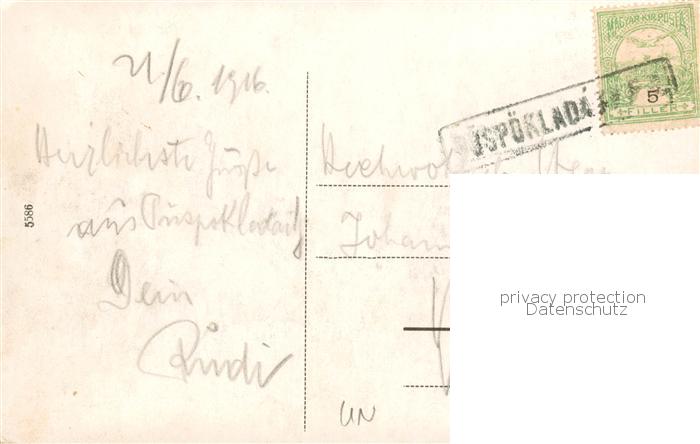 21/6. 1916.
Herzlichste Grüße
aus Püspökladány
Dein
Rudi
5586
MAGYAR KIR. POSTA
5
FILLER
PÜSPÖKLADÁ
Hochwohl
Johann
UN
privacy protection
Datenschutz